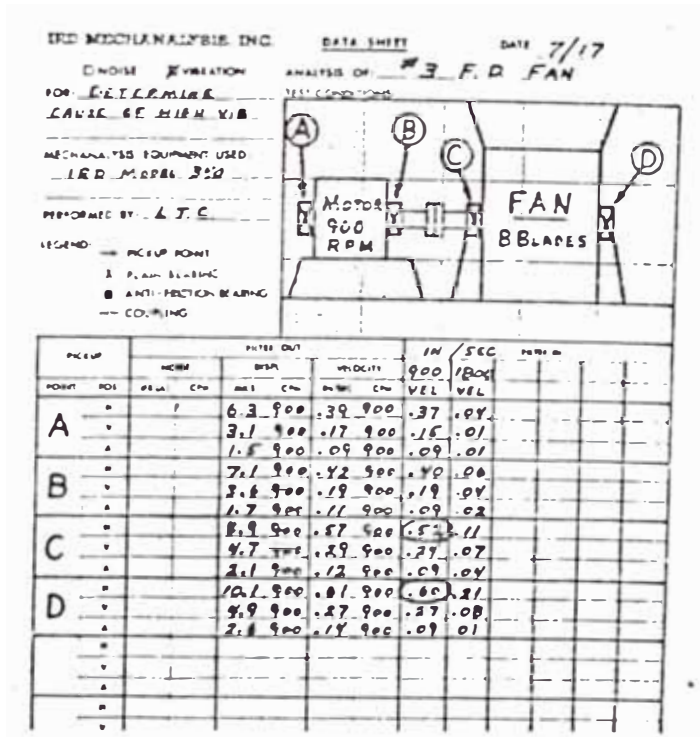 IRD MECHANALYSIS INC.
DATA SHEET
DATE 7/17
NOISE VIBRATION
ANALYSIS OF: #3 F.D. FAN
FOR: DETERMINE
CAUSE OF HIGH VIB
TEST CONDITIONS
MECHANALYSIS EQUIPMENT USED
IRD MODEL 350
PERFORMED BY: L T C
LEGEND:
PICKUP POINT
PLAIN BEARING
ANTI-FRICTION BEARING
COUPLING
A
B
C
D
MOTOR
900
RPM
FAN
8 BLADES
PICKUP
FILTER OUT
IN/SEC
FILTER IN
NOISE DISPL VELOCITY 900 1800
POINT POS CPM MILS CPM IN/SEC CPM VEL VEL
A H 6.3 900 .39 900 .37 .04
V 3.1 900 .17 900 .15 .01
A 1.5 900 .09 900 .09 .01
B H 7.1 900 .42 900 .40 .06
V 900 .19 900 .19 .04
A 1.7 900 .11 900 .09 .02
C H 8.9 900 .57 900 .11
V 4.7 .29 900 .29 .07
A 2.1 900 .12 900 .09 .04
D H 10.1 900 .61 900 .60 .21
V 4.9 900 .27 900 .27 .08
A 900 .14 900 .09 .01
H
V
A
H
V